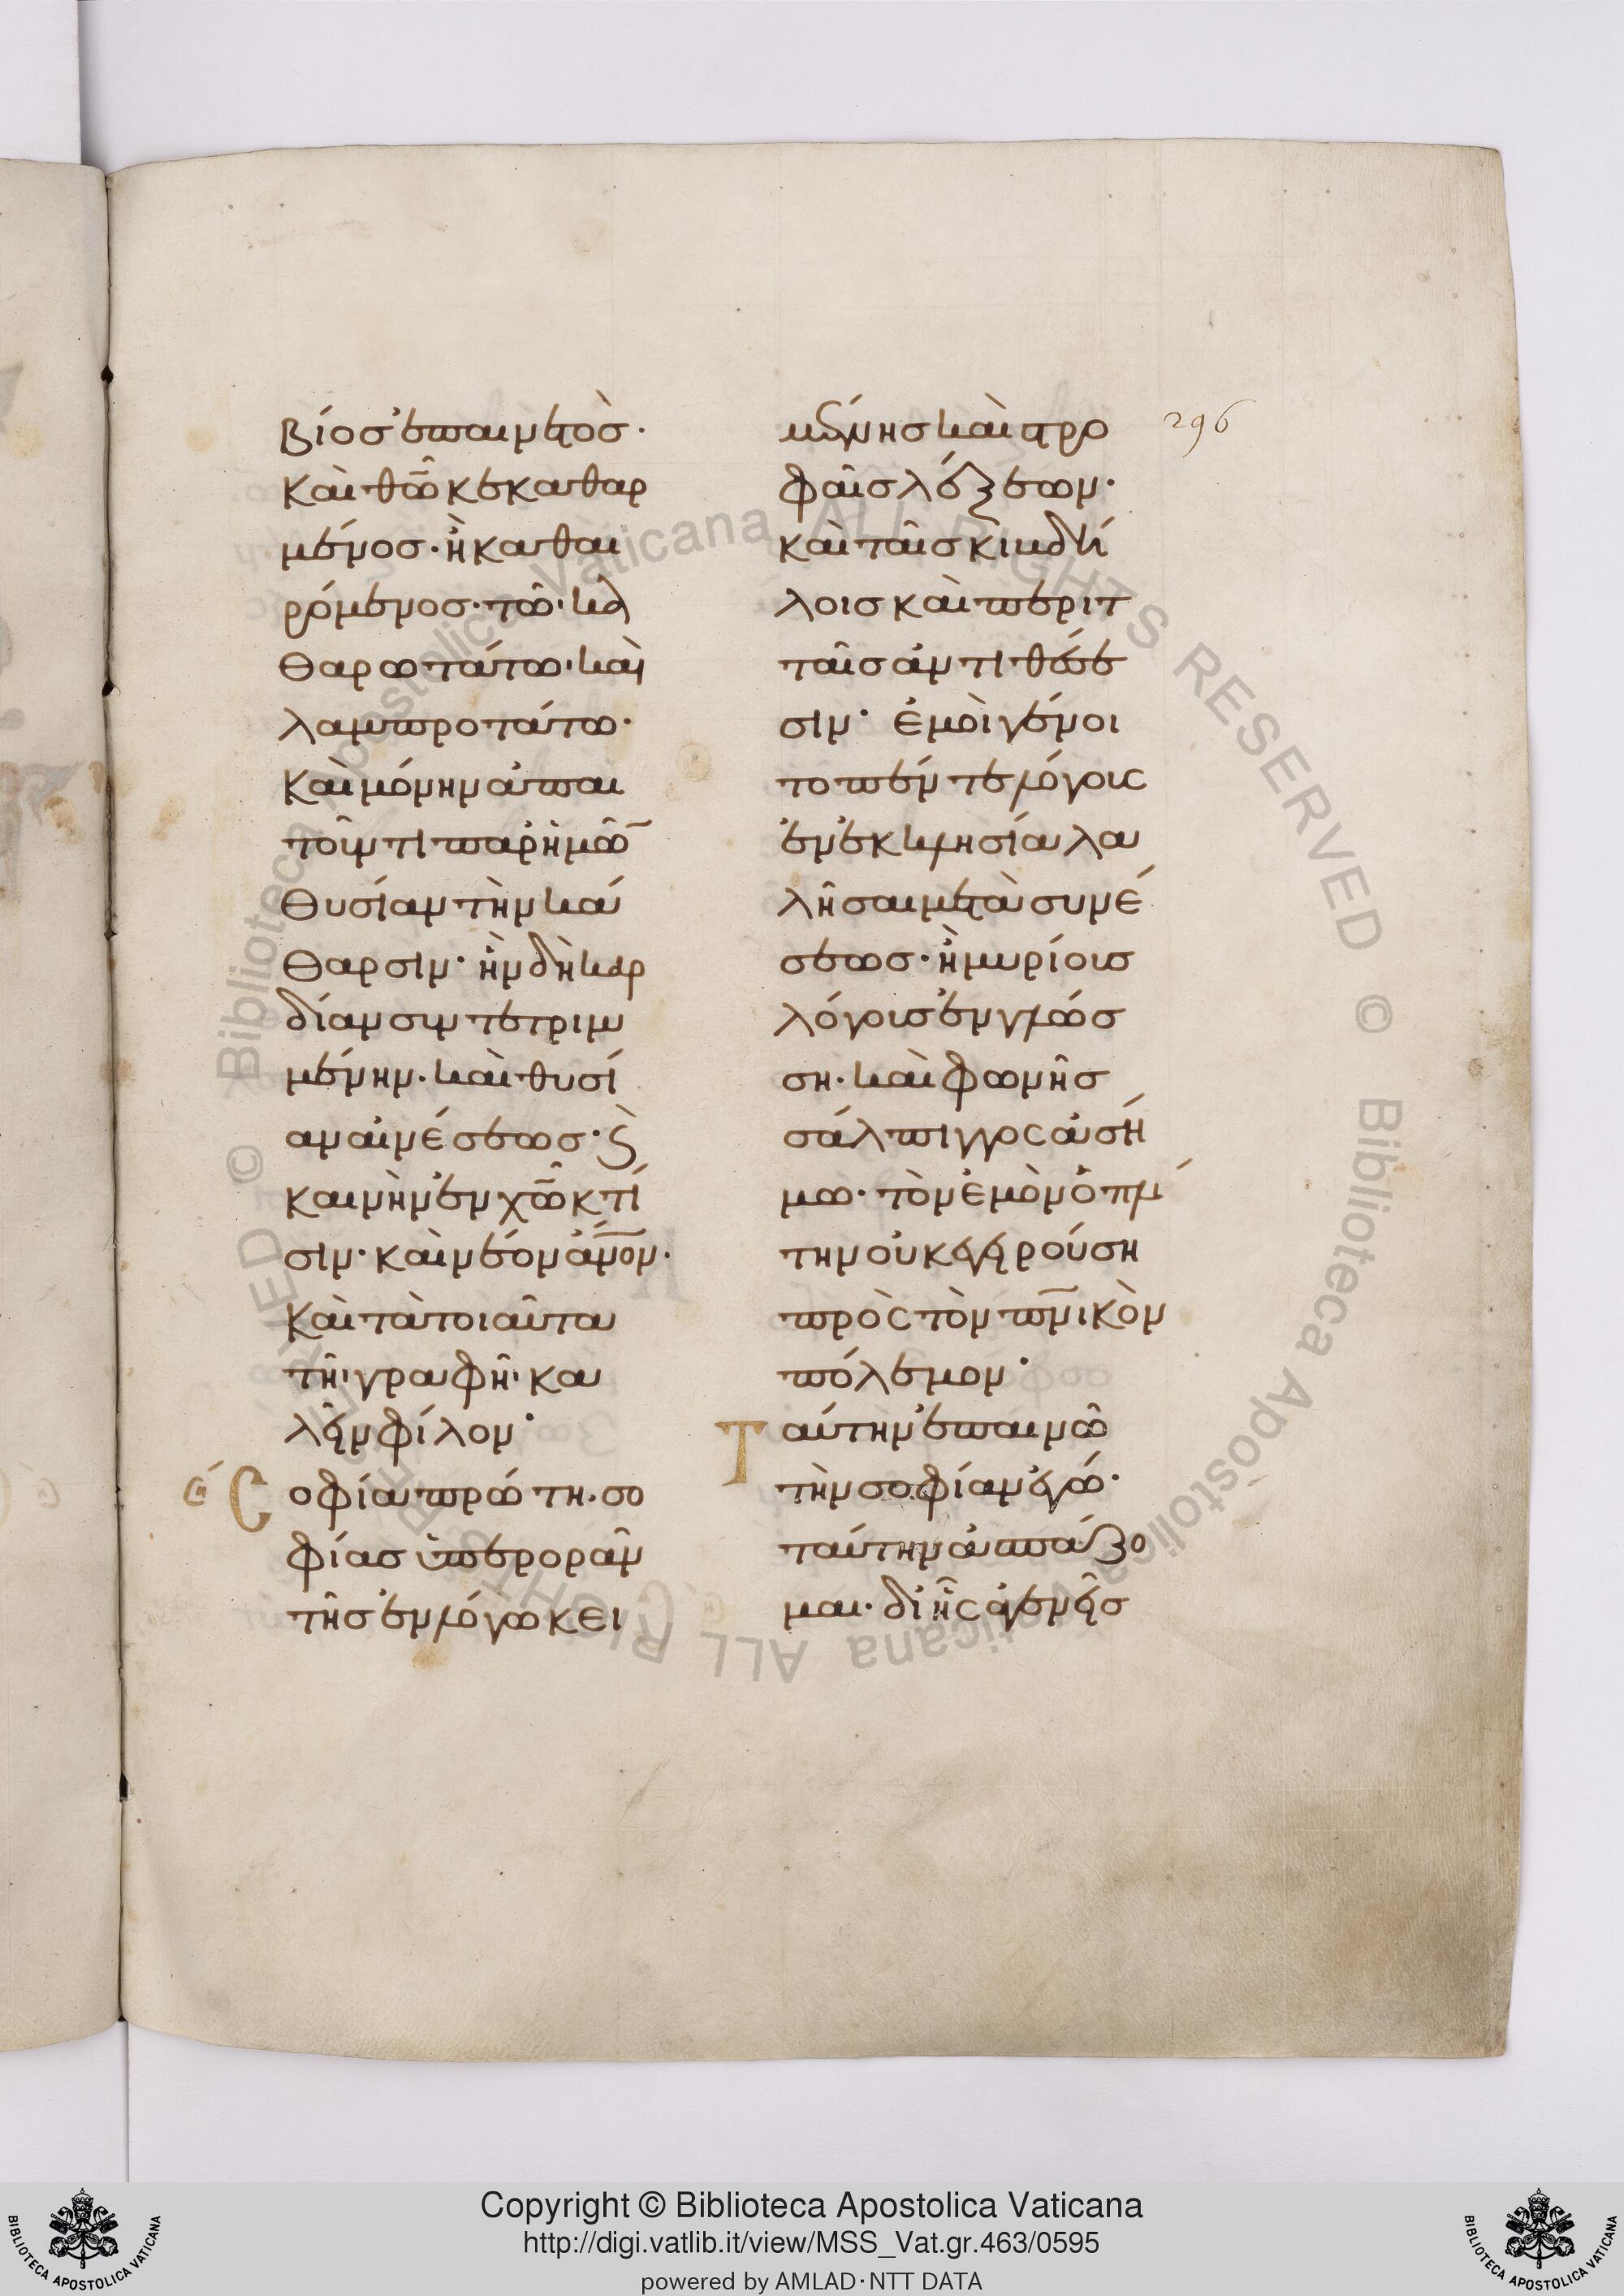 βίοσ ἐπαινετὸσ·
Καὶ θω̅ κεκαθαρ
μένοσ· ἢ καθαι
ρόμενοσ· τῶι κα
θαρωτάτωι καὶ
λαμπροτάτω·
Καὶ μόνην ἀπαι
τοῦντι παρ' ἡμῶ̅
θυσίαν τὴν κά
θαρσιν· ἣν δὴ καρ
δίαν συντετριμ
μένην· καὶ θυσί
αν αἰνέσεωσ· ϗ
καινὴν ἐν χω̅ κτί
σιν· καὶ νέον α̅ν̅ο̅ν·
Καὶ τὰ τοιαῦτα
τῆι γραφῆι κα
λεῖν φίλον·
ε Σοφία πρώτη· σο
φίασ ὑπερορᾶν
τῆσ ἐν λόγω κει
μένησ καὶ στρο
φαῖσ λέξεων·
καὶ ταῖσ κιβδή
λοισ καὶ περιτ
ταῖσ ἀντιθέσε
σιν· ἐμοὶ γένοι
το πέντε λόγουσ
ἐν ἐκκλησία λα
λῆσαι μετὰ συνέ
σεωσ· ἢ μυρίουσ
λόγουσ ἐν γλώσ
ση· καὶ φωνῆσ
σάλπιγγοσ ἀσή
μω· τὸν ἐμὸν ὁπλί
την οὐκ ἐγειρούση
πρὸσ τὸν πν̅ικὸν
πόλεμον·
Ταύτην ἐπαινῶ
τὴν σοφίαν ἐγώ·
ταύτην ἀσπάζο
μαι· δι' ἧσ ἀγενεῖσ
296
Copyright © Biblioteca Apostolica Vaticana
http://digi.vatlib.it/view/MSS_Vat.gr.463/0595
powered by AMLAD·NTT DATA
BIBLIOTECA APOSTOLICA VATICANA
BIBLIOTECA APOSTOLICA VATICANA
© Biblioteca Apostolica Vaticana ALL RIGHTS RESERVED © Biblioteca Apostolica Vaticana ALL RIGHTS RESERVED